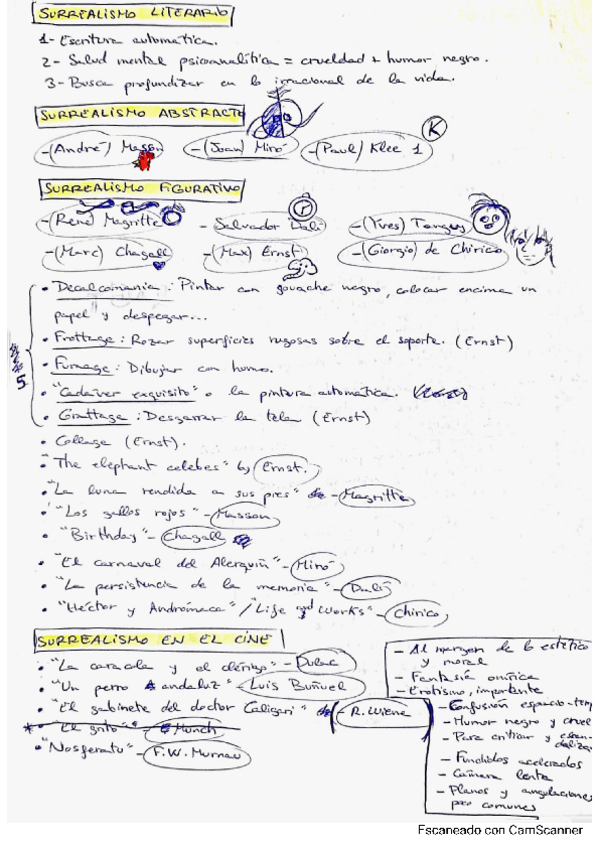 SURREALISMO LITERARIO
1- Escritura automática.
2- Salud mental psicoanalítica = crueldad + humor negro.
3- Busca profundizar en lo irracional de la vida.
SURREALISMO ABSTRACTO
-(André) Masson -(Joan) Miró -(Paul) Klee 1 K
SURREALISMO FIGURATIVO
-(René) Magritte - Salvador Dalí -(Yves) Tanguy
-(Marc) Chagall -(Max) Ernst -(Giorgio) de Chirico
• Decalcomanía: Pintar con gouache negro, colocar encima un
papel y despegar...
• Frottage: Rozar superficies rugosas sobre el soporte. (Ernst)
• Fumage: Dibujar con humo.
5
• "Cadáver exquisito" o la pintura automática.
• Grattage: Desgarrar la tela (Ernst)
• Collage (Ernst).
• "The elephant celebes" by Ernst.
• "La luna rendida a sus pies" - Magritte
• "Los gallos rojos" - Masson
• "Birthday" - Chagall
• "El carnaval del Alerquín" - Miró
• "La persistencia de la memoria" - Dalí
• "Héctor y Andrómaca" / "Life and Works" - Chirico
SURREALISMO EN EL CINE
• "La caracola y el clérigo" - Dulac
• "Un perro andaluz" - Luis Buñuel
• "El gabinete del doctor Caligari" - R. Wiene
* • "El grito" - Munch
• "Nosferatu" - F.W. Murnau
- Al margen de lo estético
y moral
- Fantasía onírica
- Erotismo, importante
- Confusión espacio-temp
- Humor negro y cruel
- Para criticar y escan-
dalizar
- Fundidos acelerados
- Cámara lenta
- Planos y angulaciones
poco comunes
Escaneado con CamScanner